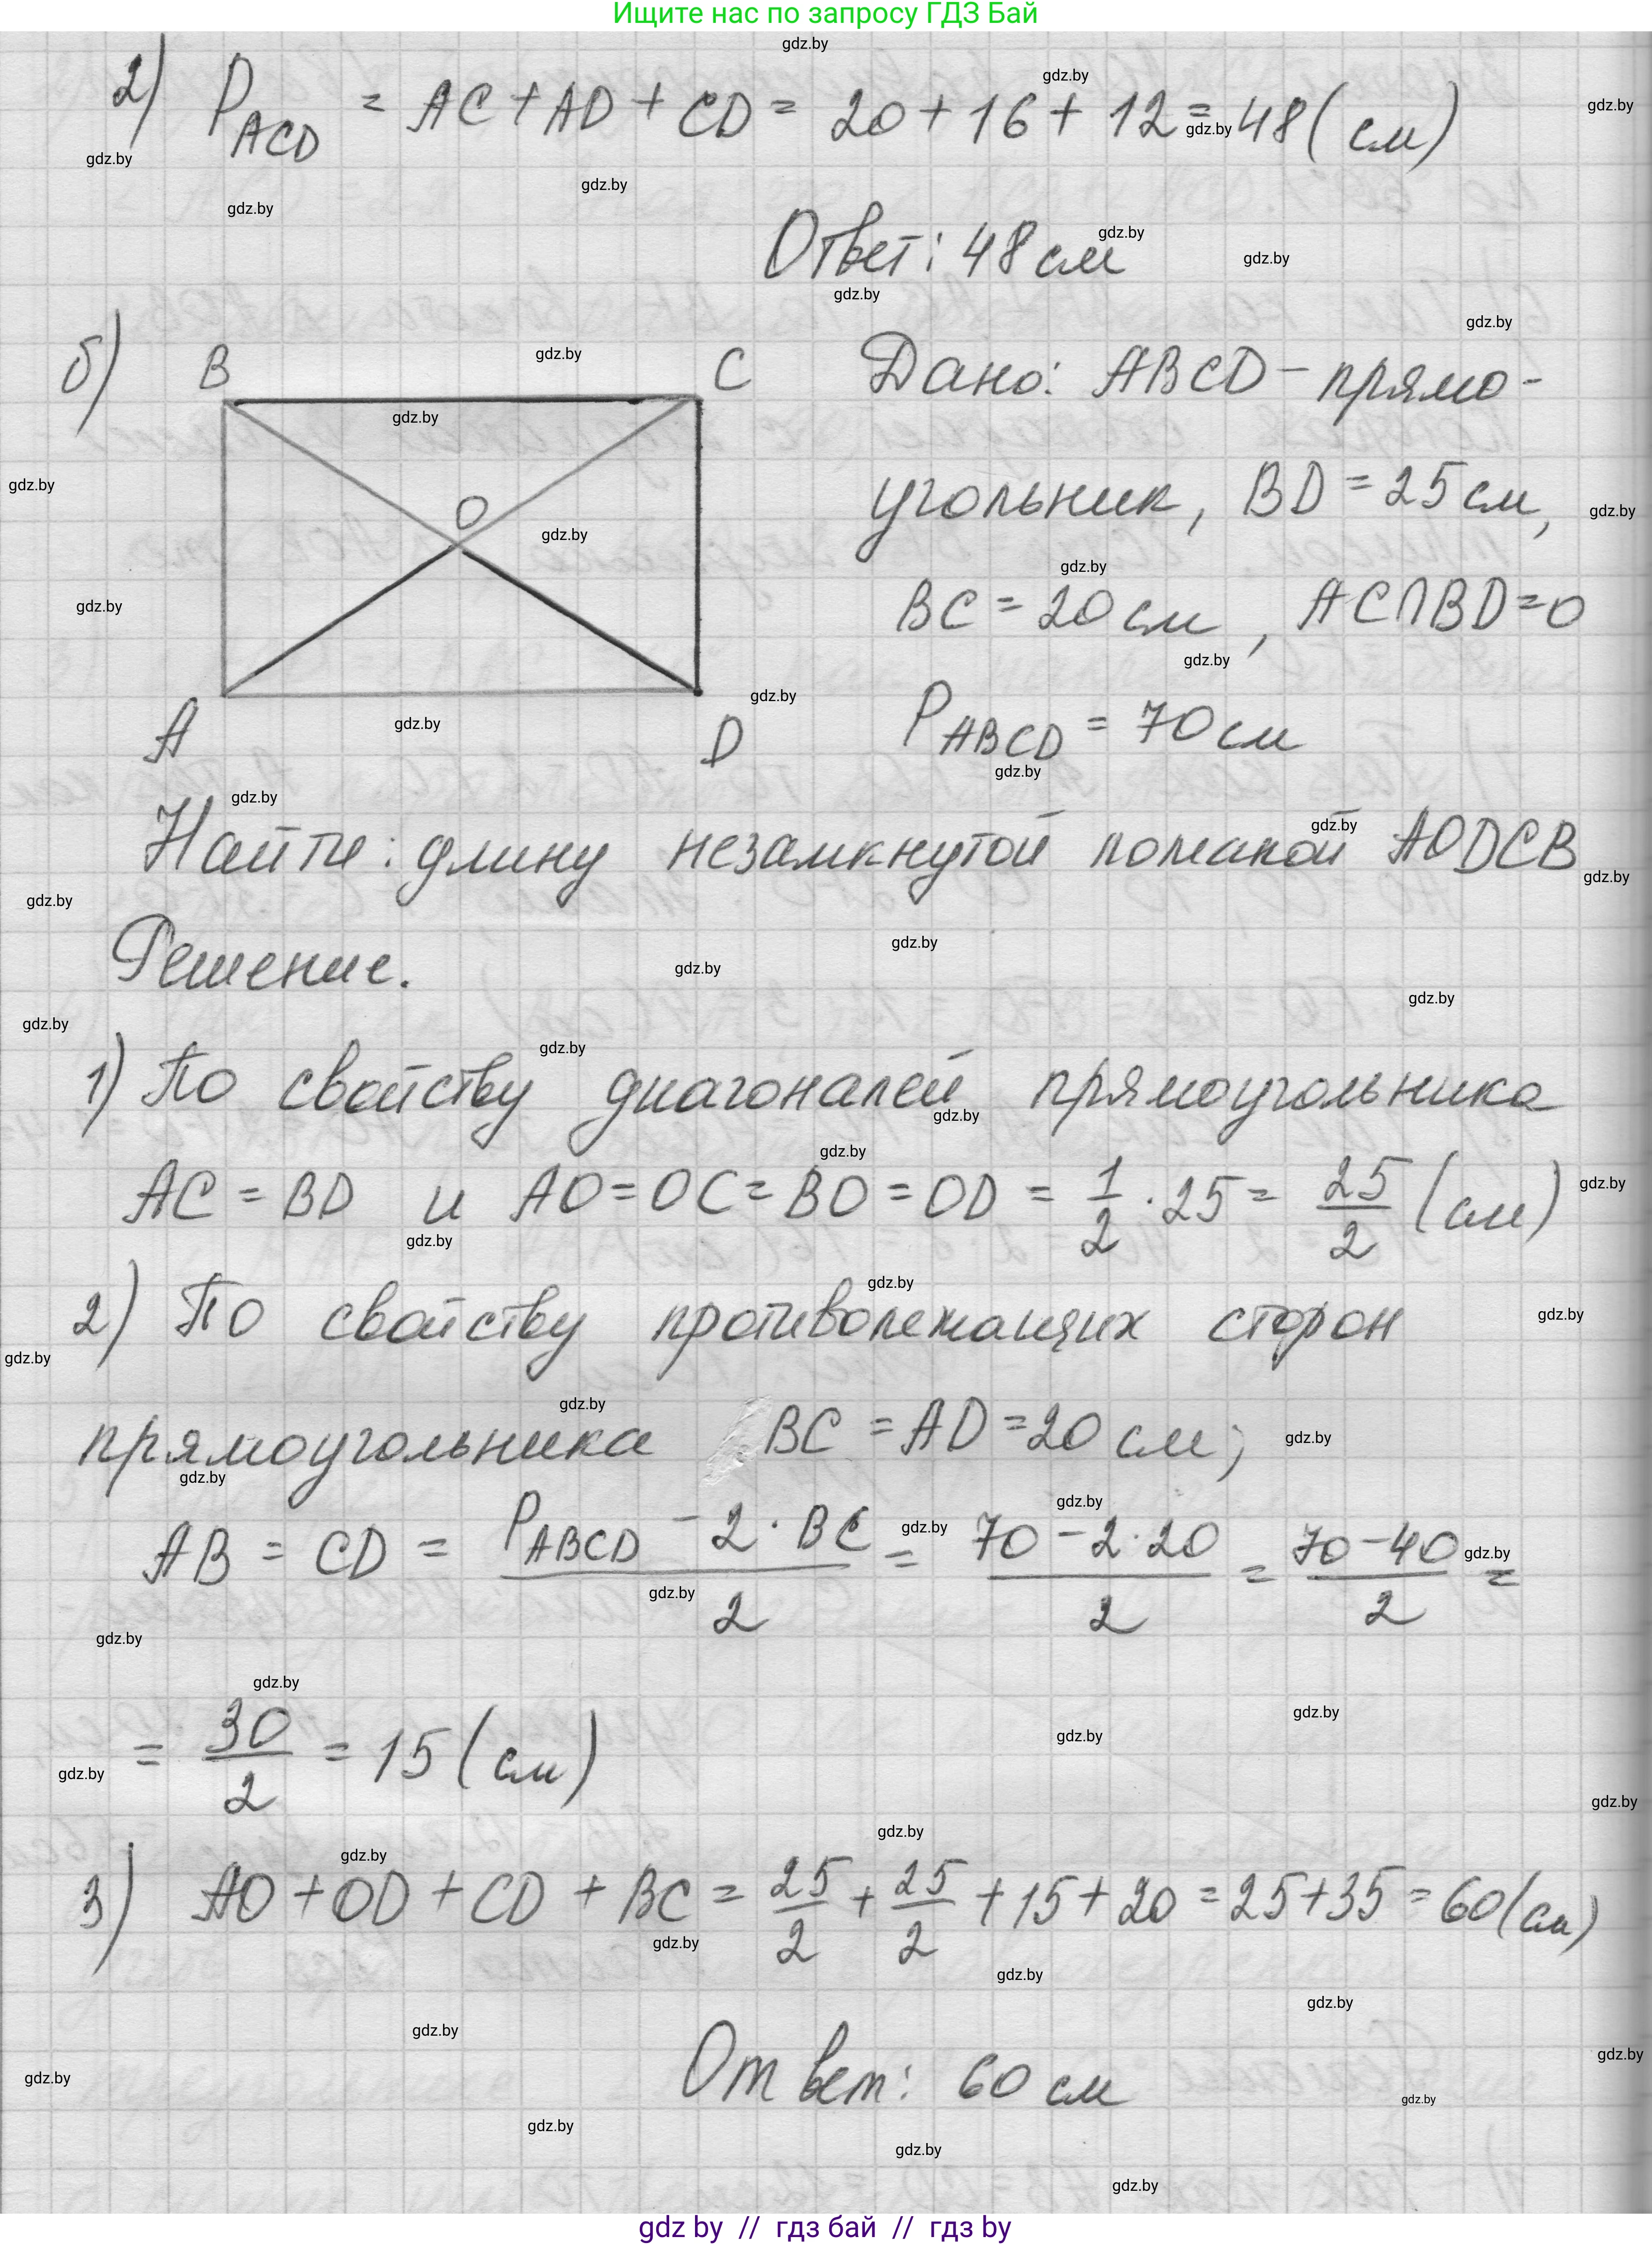 Ищите нас по запросу ГДЗ Бай
2) P_ACD = AC + AD + CD = 20 + 16 + 12 = 48 (см)
Ответ: 48 см
б)
B
C
O
A
D
Дано: ABCD - прямо-
угольник, BD = 25 см,
BC = 20 см, AC∩BD=O
P_ABCD = 70 см
Найти: длину незамкнутой ломаной AODCB
Решение.
1) По свойству диагоналей прямоугольника
AC = BD и AO = OC = BO = OD = 1/2 · 25 = 25/2 (см)
2) По свойству противолежащих сторон
прямоугольника BC = AD = 20 см;
AB = CD = (P_ABCD - 2 · BC)/2 = (70 - 2 · 20)/2 = (70 - 40)/2 =
= 30/2 = 15 (см)
3) AO + OD + CD + BC = 25/2 + 25/2 + 15 + 20 = 25 + 35 = 60 (см)
Ответ: 60 см
gdz by // гдз бай // гдз by